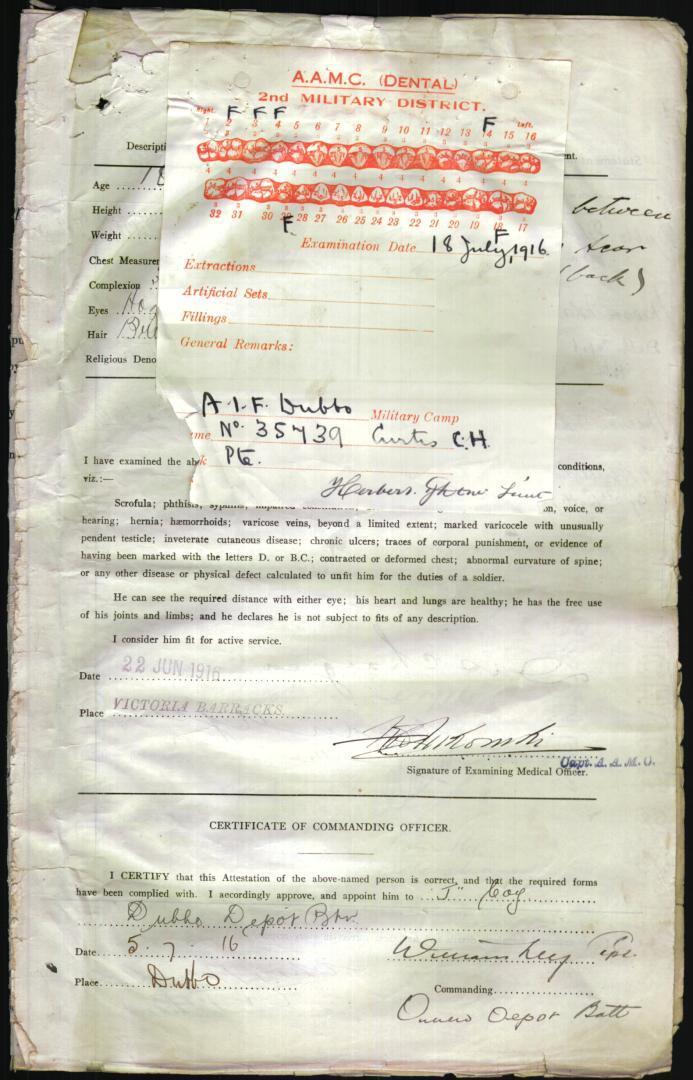 A.A.M.C. (DENTAL)
2nd MILITARY DISTRICT.
Right. F F F F Left.
1 2 3 4 5 6 7 8 9 10 11 12 13 14 15 16
32 31 30 29 28 27 26 25 24 23 22 21 20 19 18 17
F F
Examination Date 18 July, 1916.
Extractions
Artificial Sets
Fillings
General Remarks:
A.I.F. Dubbo Military Camp
No. 35439 Curtis C.H.
Pte.
Herbert Lieut
Descripti
Age 18
Height
Weight
Chest Measurem
Complexion
Eyes
Hair
Religious Deno
between
scar
(back)
I have examined the ab conditions,
viz.:—
Scrofula; phthisis, syphilis, on, voice, or
hearing; hernia; hæmorrhoids; varicose veins, beyond a limited extent; marked varicocele with unusually
pendent testicle; inveterate cutaneous disease; chronic ulcers; traces of corporal punishment, or evidence of
having been marked with the letters D. or B.C.; contracted or deformed chest; abnormal curvature of spine;
or any other disease or physical defect calculated to unfit him for the duties of a soldier.
He can see the required distance with either eye; his heart and lungs are healthy; he has the free use
of his joints and limbs; and he declares he is not subject to fits of any description.
I consider him fit for active service.
Date 22 JUN 1916
Place VICTORIA BARRACKS.
Capt. A.A.M.C.
Signature of Examining Medical Officer.
CERTIFICATE OF COMMANDING OFFICER.
I CERTIFY that this Attestation of the above-named person is correct, and that the required forms
have been complied with. I accordingly approve, and appoint him to "J" Coy
Dubbo Depot Btn.
Date 5. 7. 16
Place Dubbo
William
Commanding
Depot Batt